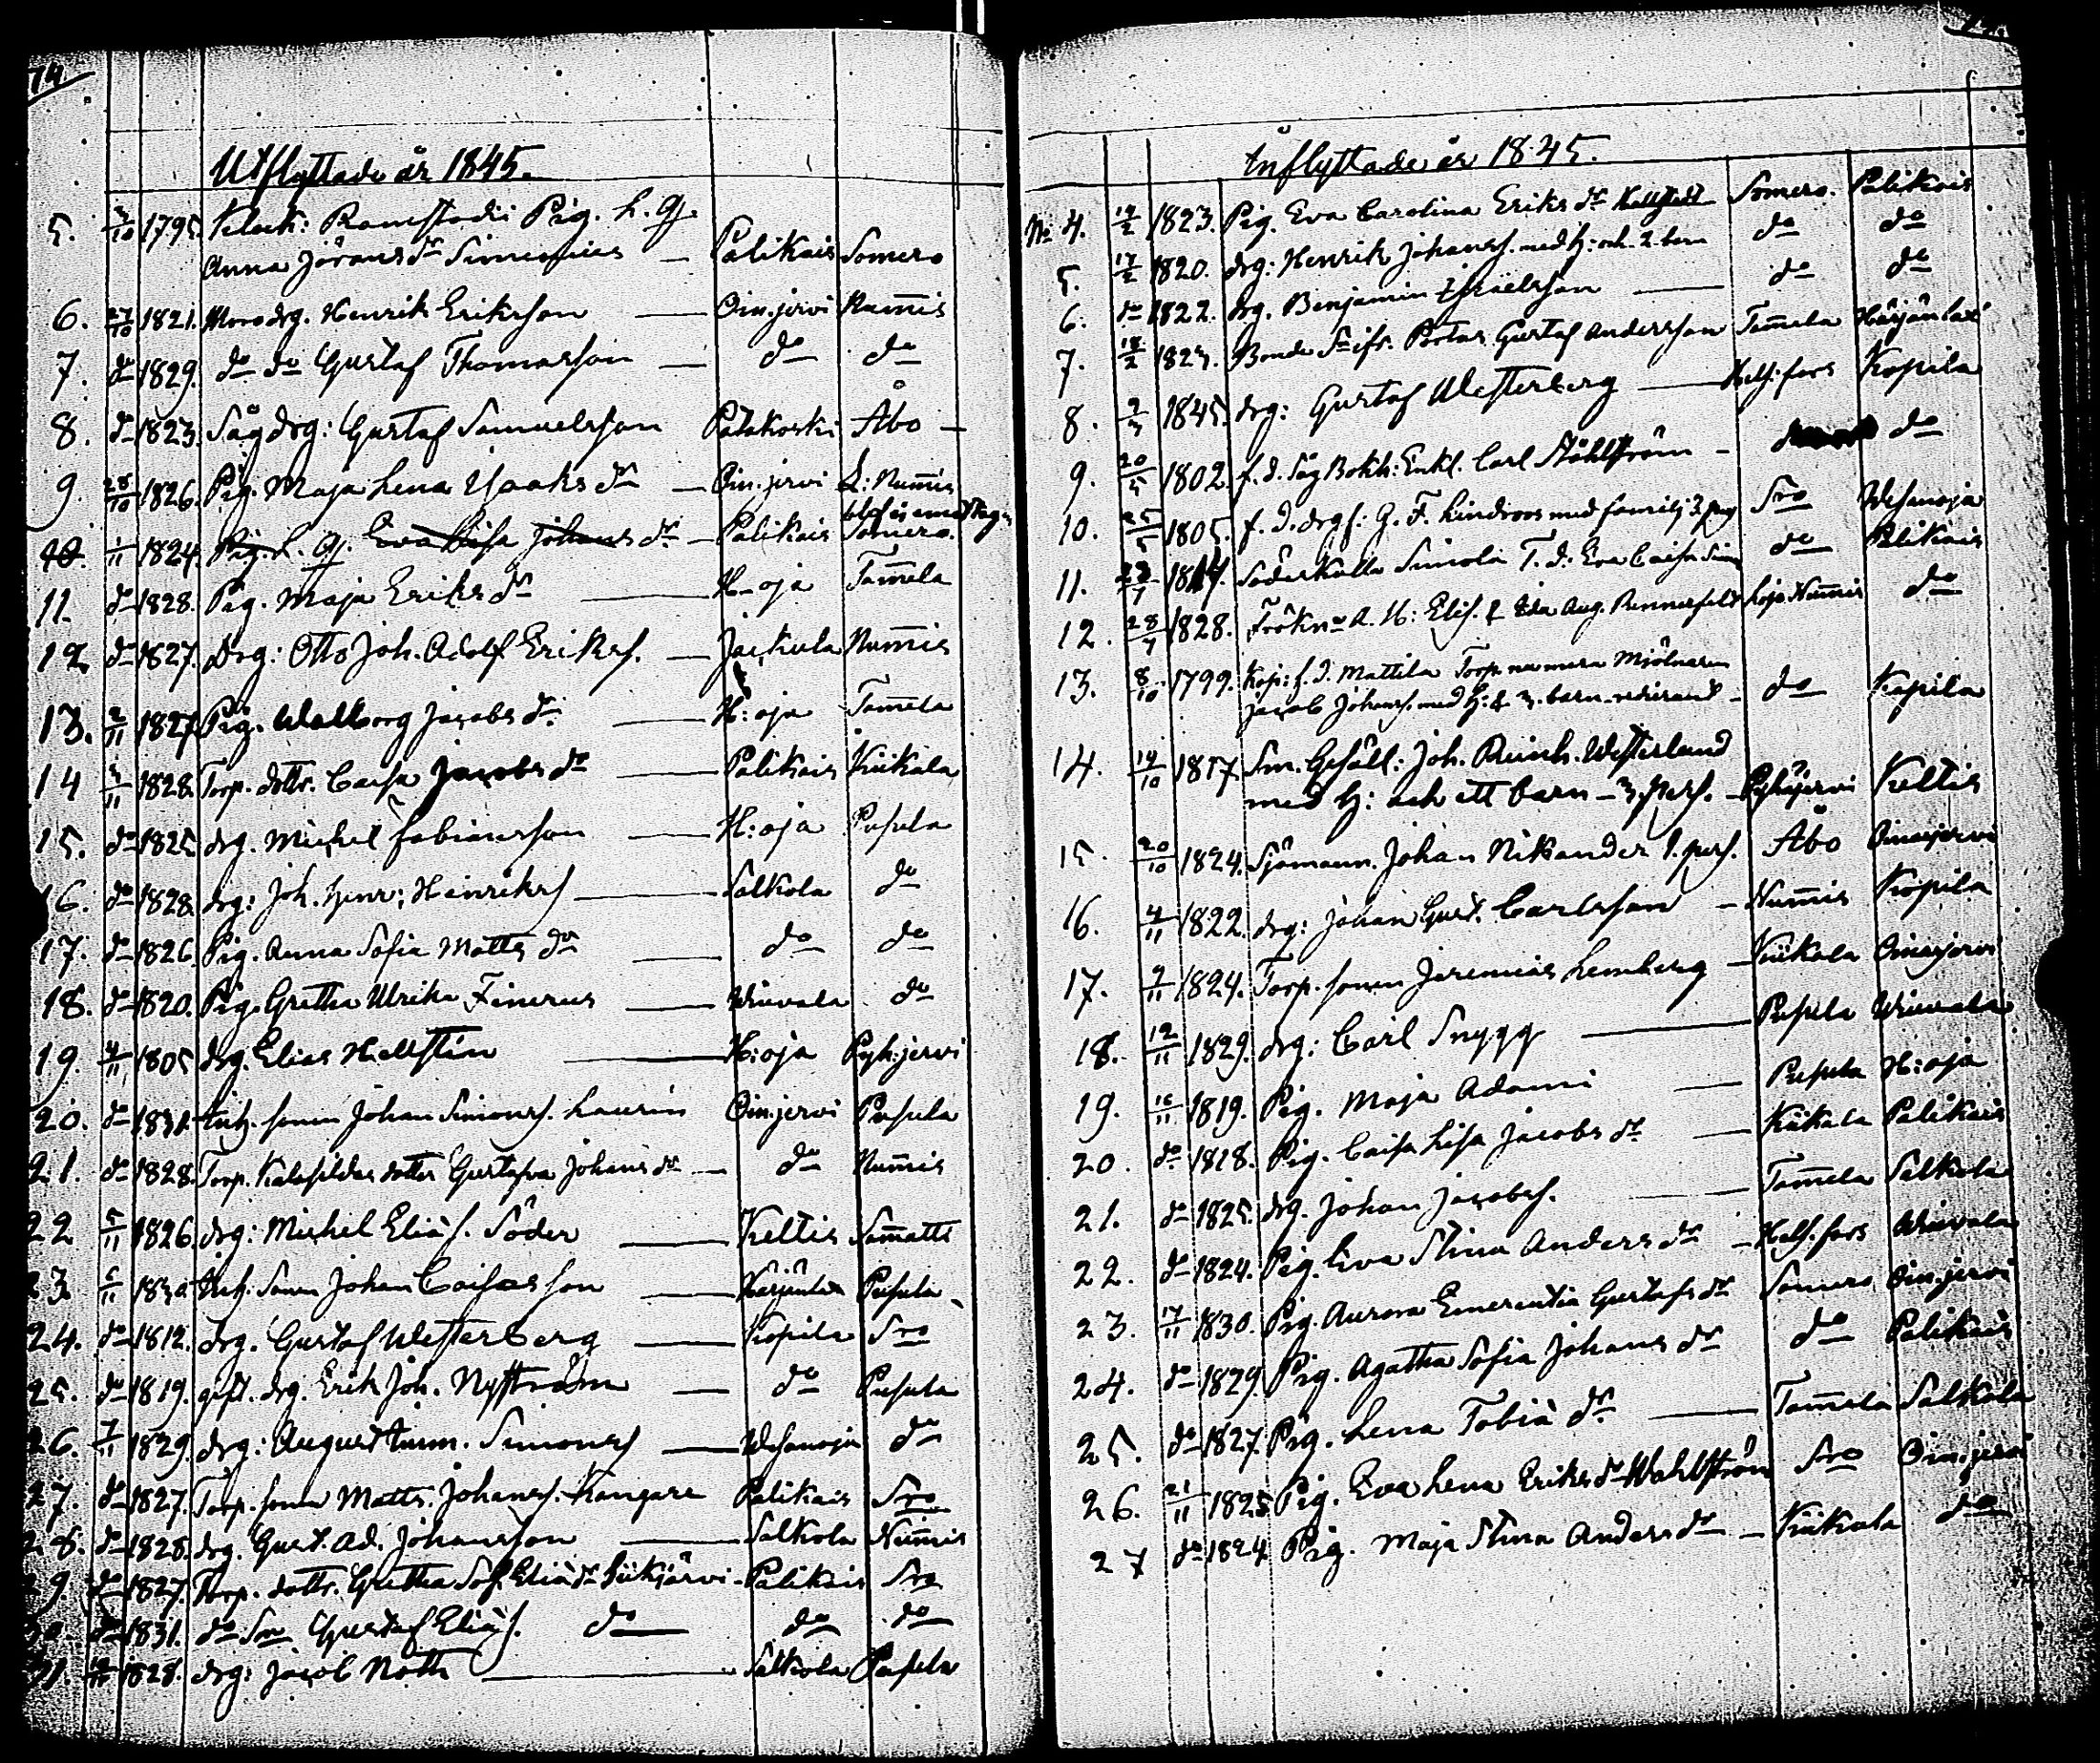 74
Utflyttade år 1845.
5. 3/10 1795. Pig. L. Gj.
Anna Jörans dr Simenius — Palikais Somero
6. 27/10 1821. drg. Henrik Eriksson — Oin.jervi Num̄is
7. do 1829. do do Gustaf Thomasson — do do
8. do 1823. Såg drg: Gustaf Samuelsson Patakoski Åbo —
9. 28/10 1826. Pig. Maja Lena Isaaks dr — Oin.jervi L: Num̄is
10. 1/11 1824. Pig. L. Gj. Eva Caisa Johans dr — Palikais Somero.
11. do 1828. Pig. Maja Eriks dr — H-oja Tam̄ela
12. do 1827. Drg: Otto Joh. Adolf Erikss. — Jackula Num̄is
13. 2/11 1827. Pig. Wallborg Jacobs dr — H:oja Tam̄ela
14 3/11 1828. Torp. dottr. Caisa Jacobs dr — Palikais Kiikala
15. do 1825. drg. Michel Fabiansson — H:oja Pusula
16. do 1828. drg: Joh. Henr: Henrikss — Salkola do
17. do 1826. Pig. Anna Sofia Matts dr — do do
18. do 1820. Pig. Gretha Ulrika Finerus — Wiuvala do
19. 4/11 1805 drg. Elias Hellstén — H:oja Pyh:jervi
20. do 1831. Inh. sonen Johan Simonss. Laurin Oin.jervi Pusula
21. do 1828. Torp. dotter Gustafva Johans dr — do Num̄is
22 5/11 1826. drg: Michel Eliæs. Söder — Keltis Sam̄atti
23 6/11 1830. Inh. Sonen Johan Caisasson — Härjänlax Pusula
24. do 1812. drg. Gustaf Westerberg — Kopila Sro
25. do 1819. gift. drg. Erik Joh. Nyström — do Pusula
26. 7/11 1829. drg: August Imm. Simonss — Wesanoja do
27. do 1827. Torp. sonen Matts Johanss. Kangare Palikais Sro
28. do 1828. drg. Gust. Ad. Johansson — Salkola Num̄is
29. do 1827. Torp. dottr. Gretha Sof. Eliæ dr Siikjärvi — Palikais Sro
30 do 1831. do Sn Gustaf Eliæs. do — do do
31. 1828. drg: Jacob Matts — Salkola Pusula
Inflyttade år 1845.
No 4. 14/2 1823. Pig. Eva Carolina Eriks dr Somero. Palikais
5. 17/2 1820. drg: Henrik Johanss. med h: och 2. barn do do
6. do 1822. drg. Benjamin Israelsson — do do
7. 18/2 1823. Bonde Sn ifr. Gustaf Andersson Tam̄ela Härjänlax
8. 9/3 1845. drg: Gustaf Westerberg — Hels:fors Kopila
9. 20/5 1802. f. d. Såg Bokh: Enkl. Carl Ståhlström — do
10. 25/5 1805. f. d. G. F. Lindroos med familj Sro Wesanoja
11. 23/7 Söderkulla Simola T. d. Eva Caisa do Palikais
12. 28/7 1828. Frökne A. H: Elis. & Ida Aug. Rennerfelt Lojo Num̄is do
13. 8/10 1799. f. d. Mattila Torp. numera Mjölnaren
Jacob Johanss. med h: & 3. barn — do Kopila
14. 14/10 1817 Sm. Gesäll: Joh. Reinh. Westerlund
med h: och ett barn — 3. pers. — Pyhäjervi Keltis
15. 20/10 1824. Sjömann. Johan Nikander 1. pers. Åbo Oinasjervi
16. 4/11 1822. drg: Johan Gust. Carlsson — Num̄is Kopila
17. 9/11 1824. Torp. sonen Jeremias Lemberg — Kiikala Oinasjervi
18. 12/11 1829. drg: Carl Snygg — Pusula Wiuvala
19. 16/11 1819. Pig. Maja Adami — Pusula H:oja
20. do 1818. Pig. Caisa Lisa Jacobs dr — Kiikala Palikais
21. do 1825. drg. Johan Jacobss. — Tam̄ela Salkola
22. do 1824. Pig. Eva Stina Anders dr — Hels.fors Wiuvala
23. 17/11 1830. Pig. Aurora Emerentia Gustafs dr Somero Oin.jervi
24. do 1829. Pig. Agatha Sofia Johans dr do Palikais
25. do 1827. Pig. Lena Tobiæ dr — Tam̄ela Salkola
26. 21/11 1825 Pig. Eva Lena Eriks dr Wahlström Sro Oin.jervi
27 do 1824 Pig. Maja Stina Anders dr — Kiikala do